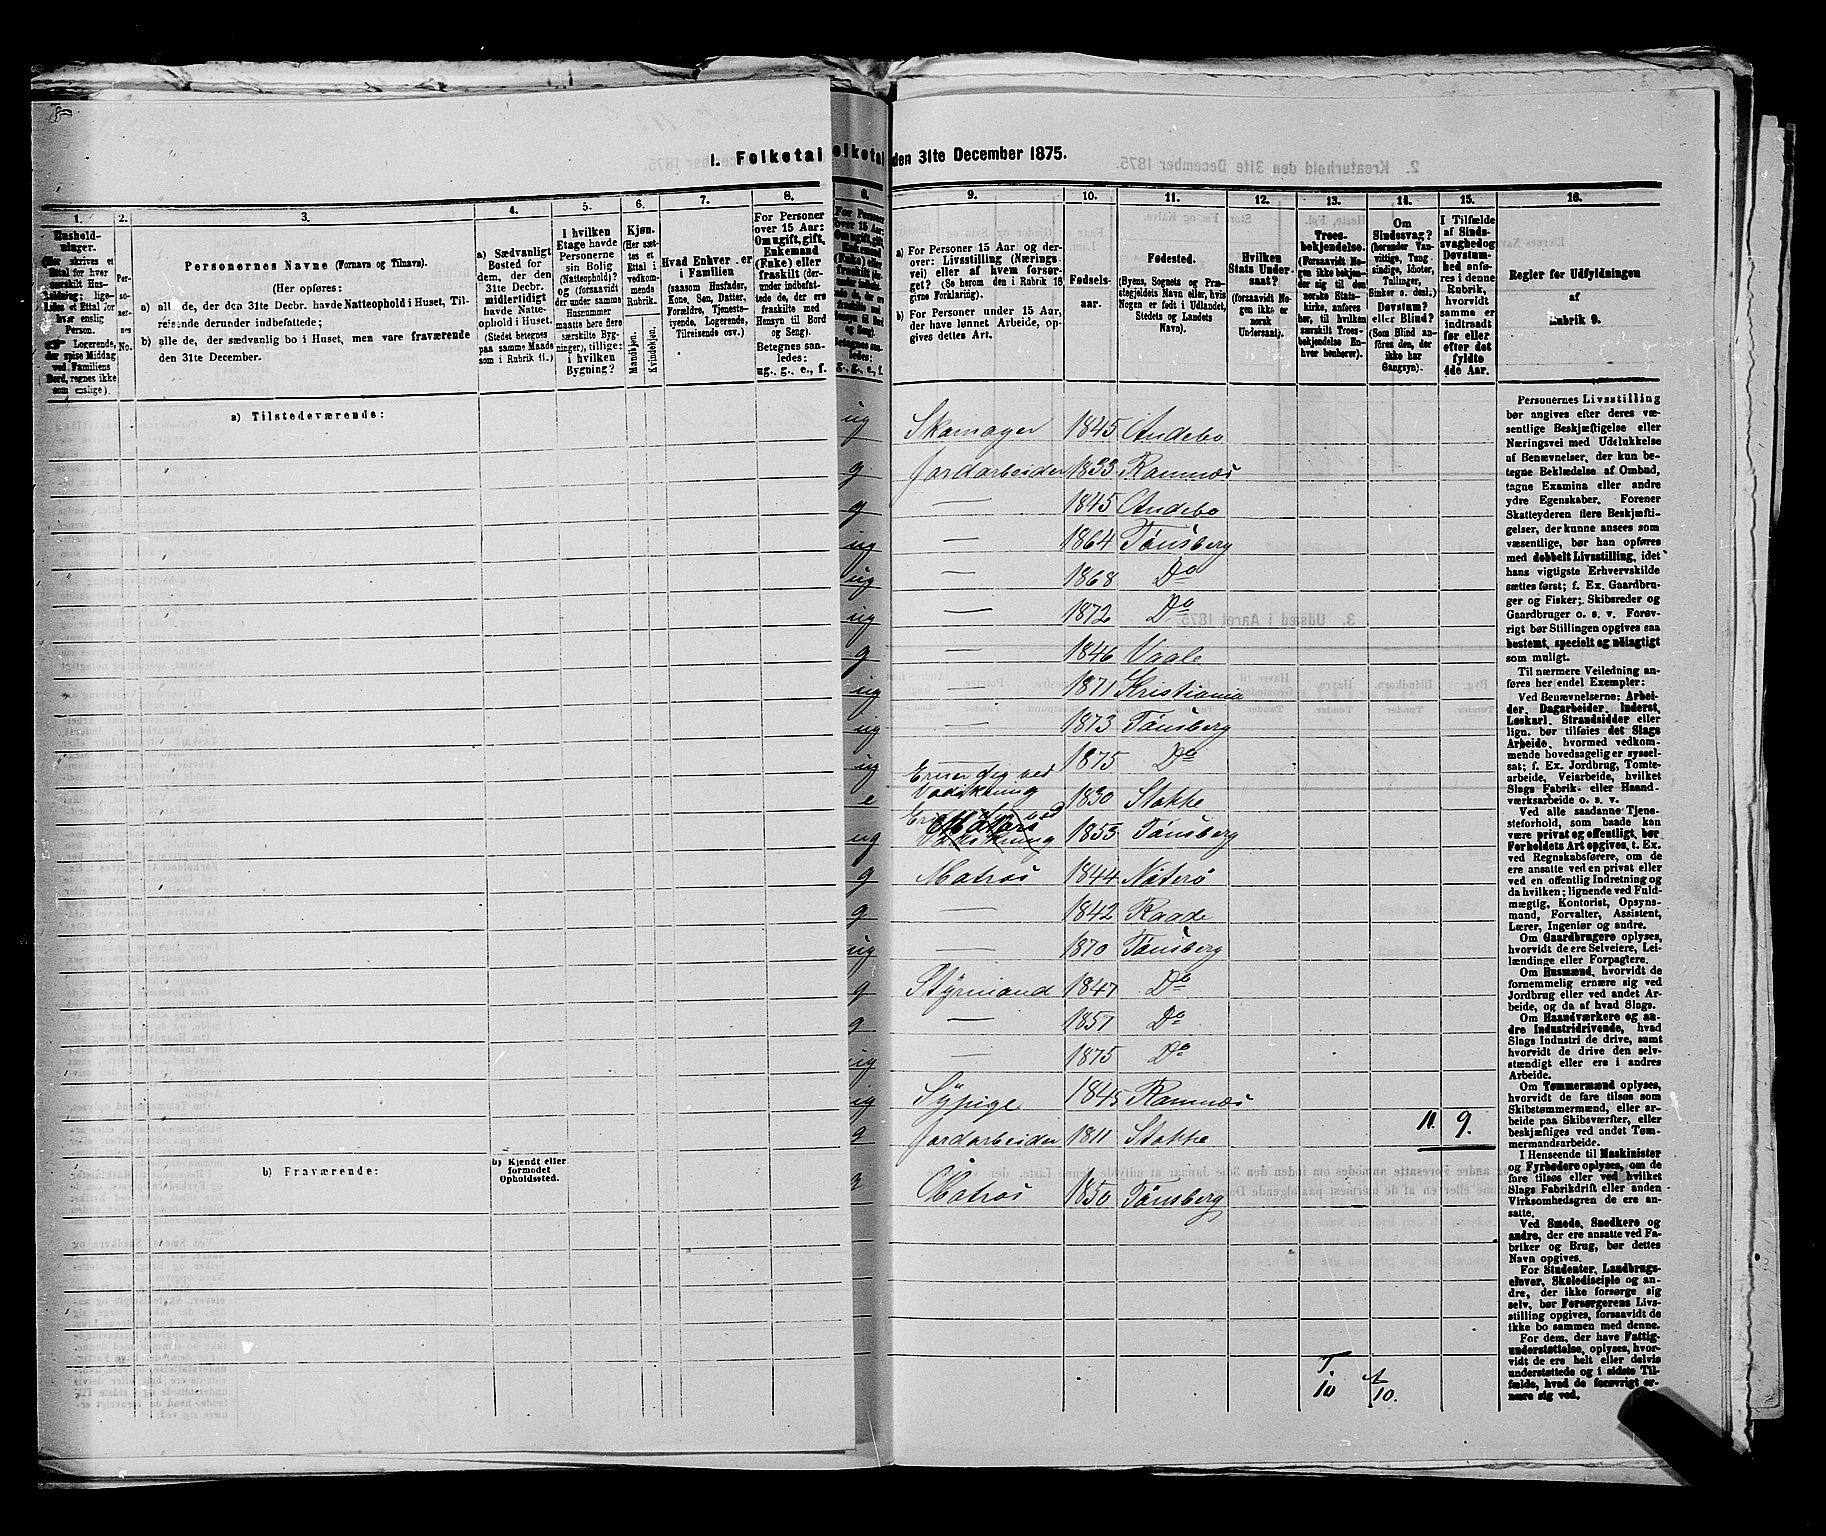 1. Folketal
olketal
den 31te December 1875.
1.
2.
3.
4.
5.
6.
7.
8.
8.
9.
10.
11.
12.
13.
14.
15.
16.
Personernes Navne (Fornavn og Tilnavn).
(Her opføres:
a) alle de, der den 31te Decbr. havde Natteophold i Huset, Til-
reisende derunder indbefattede;
b) alle de, der sædvanlig bo i Huset, men vare fraværende
den 31te December.
a) Sædvanligt
Bosted for
dem, der den
31te Decbr.
midlertidigt
havde Natte-
ophold i Huset.
(Stedet betegnes
paa samme Maade
som i Rubrik 11.)
I hvilken
Etage havde
Personerne
sin Bolig
(Natteophold)?
og (forsaavidt
der under samme
Husnummer
maatte høre flere
særskilte Byg-
ninger), tillige:
i hvilken
Bygning?
Kjøn.
(Her sæt-
tes et
Ettal i
vedkom-
mende
Rubrik.)
Mandkjøn.
Kvindekjøn.
Hvad Enhver er
i Familien
(saasom Husfader,
Kone, Søn, Datter,
Forældre, Tjeneste-
tyende, Logerende,
Tilreisende osv.)
For Personer
over 15 Aar:
Om ugift, gift,
Enkemand
(Enke) eller
fraskilt (der-
under indbefat-
tede de, der ere
fraskilte med
Hensyn til Bord
og Seng).
Betegnes saa-
ledes:
ug., g., e., f.
a) For Personer 15 Aar og der-
over: Livsstilling (Nærings-
vei) eller af hvem forsør-
get? (Se herom den i Rubrik 16
givne Forklaring).
b) For Personer under 15 Aar,
der have lønnet Arbeide, op-
gives dettes Art.
Fødsels-
aar.
Fødested.
(Byens, Sognets og Præ-
stegjeldets Navn eller, hvis
Nogen er født i Udlandet,
Stedets og Landets
Navn).
Hvilken
Stats Under-
saat?
(forsaavidt No-
gen ikke er
norsk
Undersaat).
Troes-
bekjendelse.
(Forsaavidt No-
gen ikke beken-
der sig til den
norske Stats-
kirke, anføres
her, til hvilken
særskilt Troes-
bekjendelse En-
hver henhører).
Om
Sindssvag?
(herunder Van-
vittige, Tung-
sindige, Idioter,
Tullinger,
Sinker o. desl.)
Døvstum?
eller Blind?
(Som Blind an-
føres den, der
ikke har
Gangsyn).
I Tilfælde
af Sinds-
svaghed og
Døvstum-
hed anfø-
res i denne
Rubrik,
hvorvidt
samme er
indtraadt
før eller
efter det
fyldte
4de Aar.
Regler for Udfyldningen
af
Rubrik 9.
a) Tilstedeværende:
ug Skomager 1845 Andebo
g Jordarbeider 1833 Ramnæs
g — 1845 Andebo
ug — 1864 Tønsberg
ug — 1868 Do
ug — 1872 Do
g — 1846 Vaale
ug — 1871 Kristiania
ug — 1873 Tønsberg
ug — 1875 Do
e Ernær sig ved
Vadskning 1830 Stokke
ug 1853 Tønsberg
g Matros 1844 Nøterø
g — 1842 Raade
ug — 1870 Tønsberg
g Styrmand 1847 Do
g — 1857 Do
ug — 1875 Do
ug Sypige 1845 Ramnæs
g Jordarbeider 1811 Stokke
11. 9.
b) Fraværende:
b) Kjendt eller
formodet
Opholdssted.
g Matros 1850 Tønsberg
T.
10
10.
Personernes Livsstilling
bør angives efter deres væ-
sentlige Beskjæftigelse eller
Næringsvei med Udelukkelse
af Benævnelser, der kun be-
tegne Beklædelse af Ombud,
tagne Examina eller andre
ydre Egenskaber. Forener
Skatteyderen flere Beskjæfti-
gelser, der kunne ansees som
væsentlige, bør han opføres
med dobbelt Livsstilling, idet
hans vigtigste Erhvervskilde
sættes først; f. Ex. Gaardbru-
ger og Fisker; Skibsreder og
Gaardbruger o. s. v. Forøv-
rigt bør Stillingen opgives saa
bestemt, specielt og nøiagtigt
som muligt.
Til nærmere Veiledning an-
føres her endel Exempler:
Ved Benævnelserne: Arbei-
der, Dagarbeider, Inderst,
Løskarl, Strandsidder eller
lign. bør tilføies det Slags
Arbeide, hvormed vedkom-
mende hovedsagelig er syssel-
sat; f. Ex. Jordbrug, Tomte-
arbeide, Veiarbeide, hvilket
Slags Fabrik- eller Haand-
værksarbeide o. s. v.
Ved alle saadanne Tjene-
steforhold, som baade kan
være privat og offentligt, bør
Forholdets Art opgives, t. Ex.
ved Regnskabsførere, om de
ere ansatte ved en privat eller
ved en offentlig Indretning og
da hvilken; lignende ved Fuld-
mægtig, Kontorist, Opsyns-
mand, Forvalter, Assistent,
Lærer, Ingeniør og andre.
Om Gaardbrugere oplyses,
hvorvidt de ere Selveiere, Lei-
lændinge eller Forpagtere.
Om Husmænd, hvorvidt de
fornemmelig ernære sig ved
Jordbrug eller ved andet Ar-
beide, og da af hvad Slags.
Om Haandværkere og an-
dre Industridrivende, hvad
Slags Industri de drive, samt
hvorvidt de drive den selv-
stændigt eller ere i andres
Arbeide.
Om Tømmermænd oplyses,
hvorvidt de fare tilsøs som
Skibstømmermænd, eller ar-
beide paa Skibsværfter, eller
beskjæftiges ved andet Tøm-
mermandsarbeide.
I Henseende til Maskinister
og Fyrbødere oplyses, om de
fare tilsøs eller ved hvilket
Slags Fabrikdrift eller anden
Virksomhedsgren de ere an-
satte.
Ved Smede, Snedkere og
andre, der ere ansatte ved Fa-
briker og Brug, bør dettes
Navn opgives.
For Studenter, Landbrugs-
elever, Skoledisciple og an-
dre, der ikke forsørge sig
selv, bør Forsørgerens Livs-
stilling opgives, forsaavidt de
ikke bo sammen med denne.
For dem, der have Fattig-
understøttelse, oplyses, hvor-
vidt de ere helt eller delvis
understøttede og i sidste Til-
fælde, hvad de forøvrigt er-
nære sig ved.